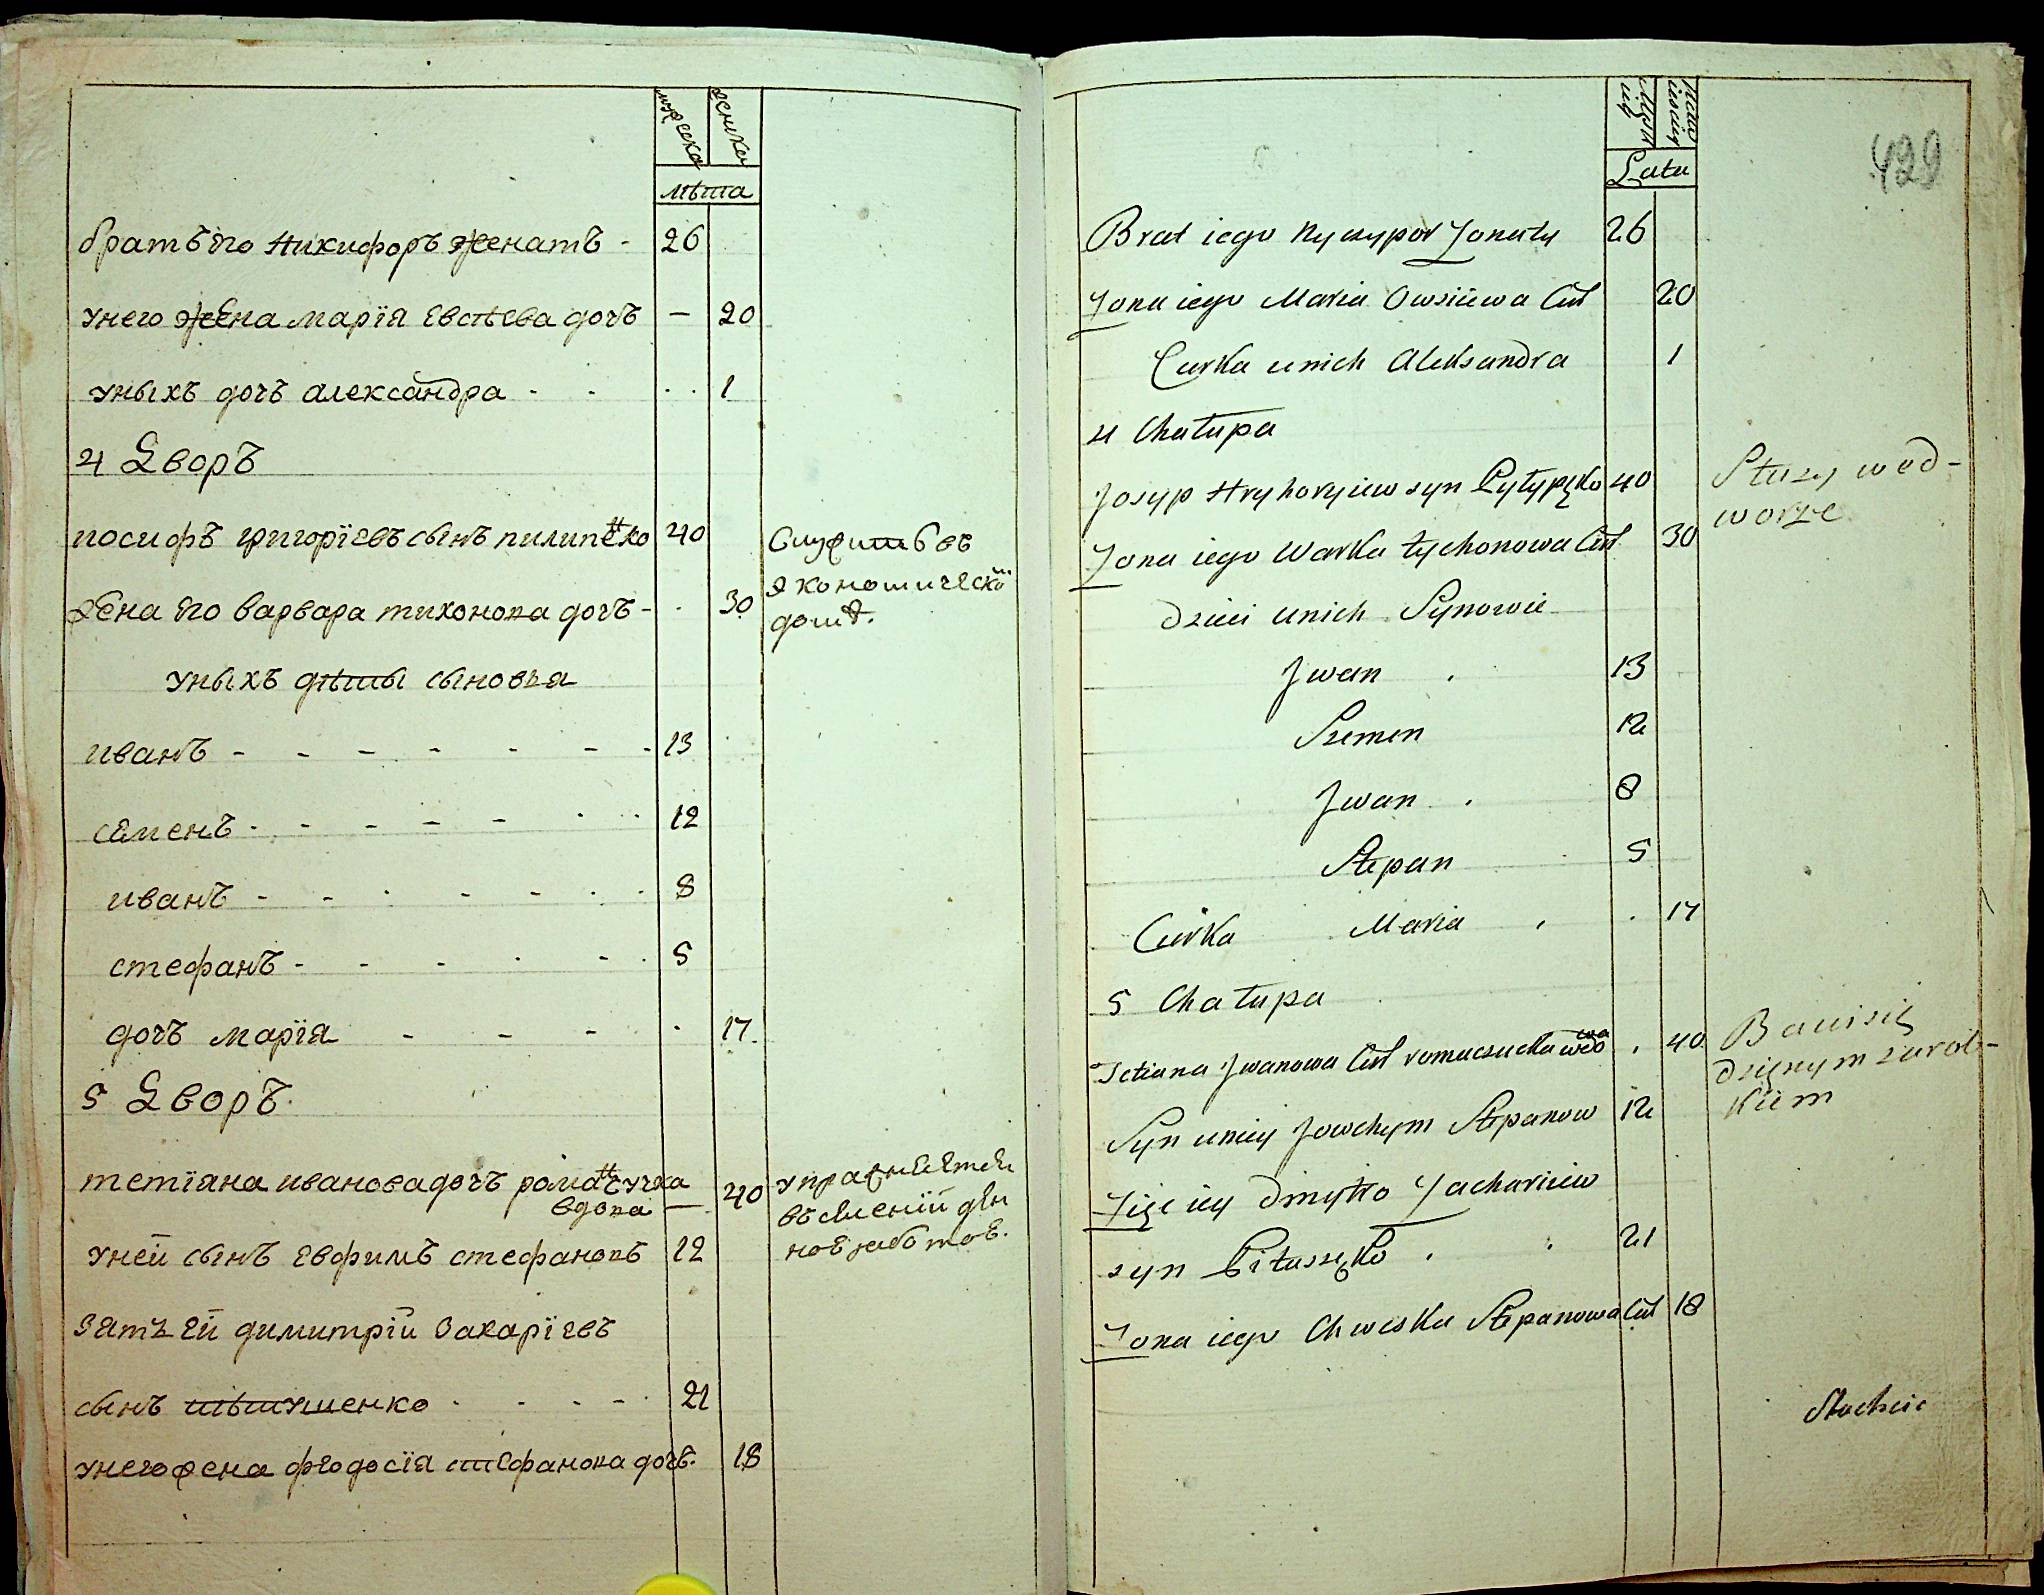 мужеска
женска
лѣта
братъ его никифоръ женатъ - 26
унего жена марїя евсѣева дочь — 20
уныхъ дочь александра - - . . 1
4 Дворъ
иосифъ григорїевъ сынъ пилипенко 40 Служитъ въ
экономическо
жена его варвара тихонова дочь - . 30 домѣ.
уныхъ дѣты сыновья
иванъ - - - - - - - 13
семенъ - - - - - - . 12
иванъ - - - - - . . 8
стефанъ - - - - - . 5
дочь марїя - - - . 17
5 Дворъ
тетїяна иванова дочь романчучка
вдова — 40 упражняется
въ снеенїи дн
уней сынъ евфимъ стефановъ 12
зять ей димитрїй захарїевъ
сынъ пѣтушенко - - - - 21
унего жена феодосїя стефанова дочь. 18
429
Latu
Brat iego Nyczypor Zonaty 26
Zona iego Maria Owsiiewa Cur 20
Curka unich Alexsandra 1
4 Chałupa
Josyp Hryhoryiew syn Pyłypęko 40 Służy wod-
worze
Zona iego Warka Tychonowa Cur 30
Dzieci unich Synowie
Jwan . 13
Szemen 12
Jwan . 8
Stepan 5
Curka Maria . . 17
5 Chałupa
Tetiana Jwanowa Cur romaczuczka wdo
wa . 40 Bawisię
dzięnym zarob-
kiem
Syn uniey Jowchym Stepanow 12
Zięc iey Dmytro Zachariiew
syn Pituszęko . . 21
Zona iego Chweska Stepanowa Cur 18